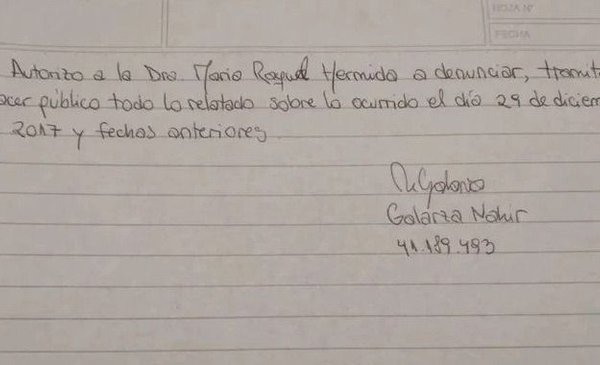 HOJA Nº
FECHA
Autorizo a la Dra. María Raquel Hermida a denunciar, tramit
acer público todo lo relatado sobre lo ocurrido el día 29 de diciem
2017 y fechas anteriores.
Galarza Nahir
41.189.493